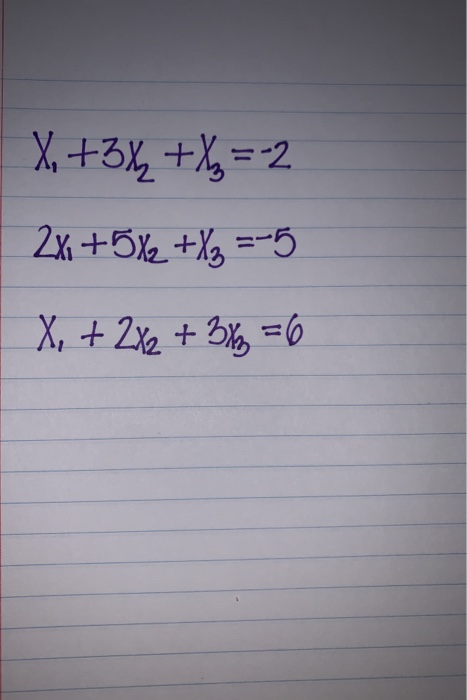 X₁ + 3X₂ + X₃ = -2
2x₁ + 5x₂ + x₃ = -5
X₁ + 2x₂ + 3x₃ = 6